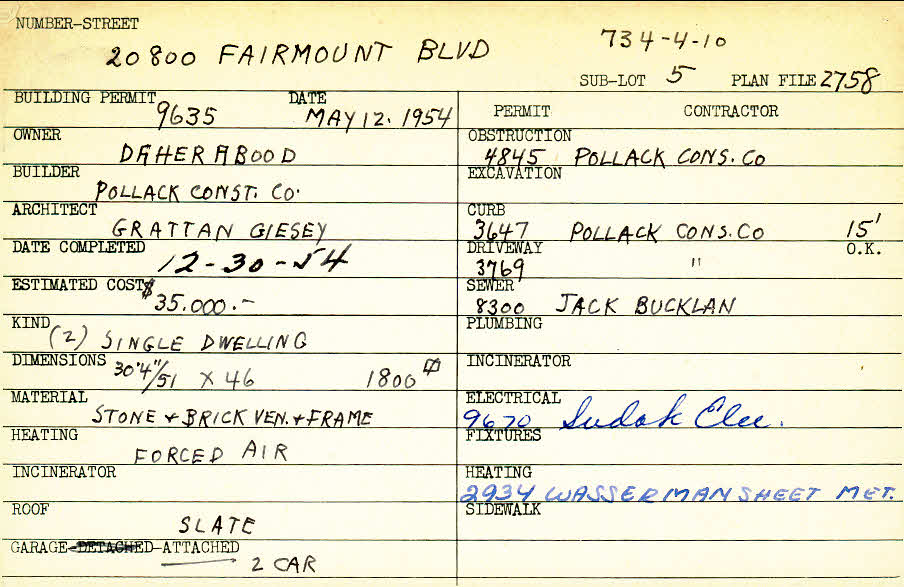 NUMBER-STREET
20800 FAIRMOUNT BLVD 734-4-10
SUB-LOT 5 PLAN FILE 2758
BUILDING PERMIT 9635 DATE MAY 12. 1954
OWNER DAHER ABOOD
BUILDER POLLACK CONST. CO.
ARCHITECT GRATTAN GIESEY
DATE COMPLETED 12-30-54
ESTIMATED COST $35.000.-
KIND (2) SINGLE DWELLING
DIMENSIONS 30'4"/51 X 46 1800
MATERIAL STONE + BRICK VEN. + FRAME
HEATING FORCED AIR
INCINERATOR
ROOF SLATE
GARAGE-DETACHED-ATTACHED
2 CAR
PERMIT CONTRACTOR
OBSTRUCTION
4845 POLLACK CONS. CO
EXCAVATION
CURB
3647 POLLACK CONS. CO 15'
DRIVEWAY O.K.
3769 "
SEWER
8300 JACK BUCKLAN
PLUMBING
INCINERATOR
ELECTRICAL
9670 Sudak Elec.
FIXTURES
HEATING
2934 WASSERMAN SHEET MET.
SIDEWALK